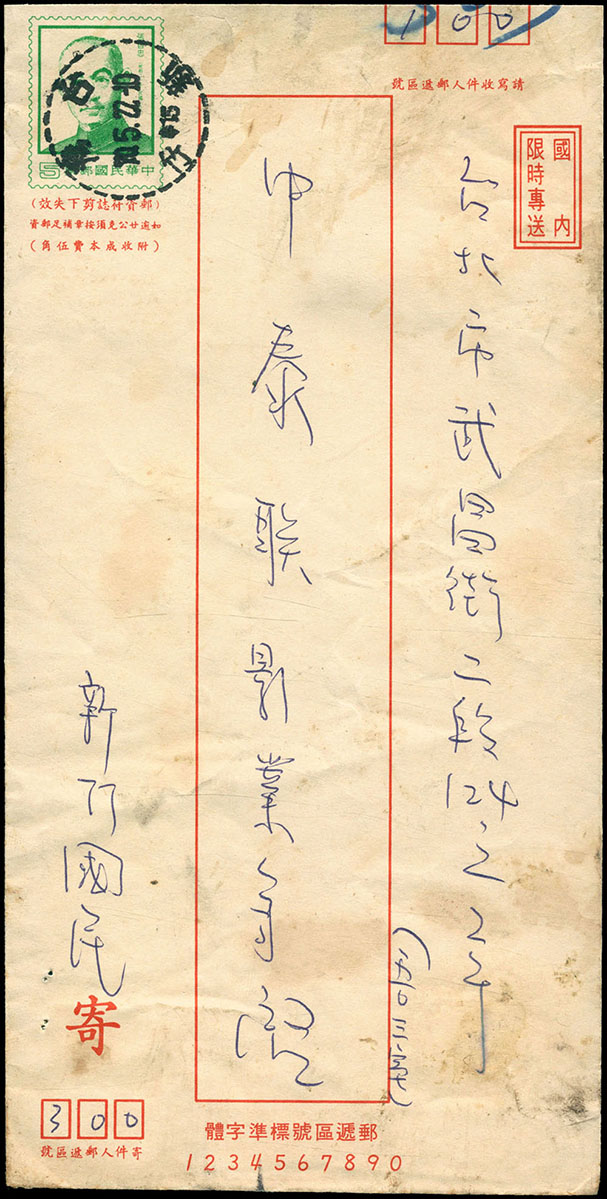 100
號區遞郵人件收寫請
國內
限時專送
中華民國郵
5
(郵資符誌剪下失效)
如逾廿公克須按章補足郵資
(附收成本費伍角)
台北市武昌街二段124之2号
(五〇三室)
中泰联影業公司 啟
新竹國民
寄
300
寄件人郵遞區號
郵遞區號標準字體
1234567890